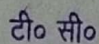 टी० सी०